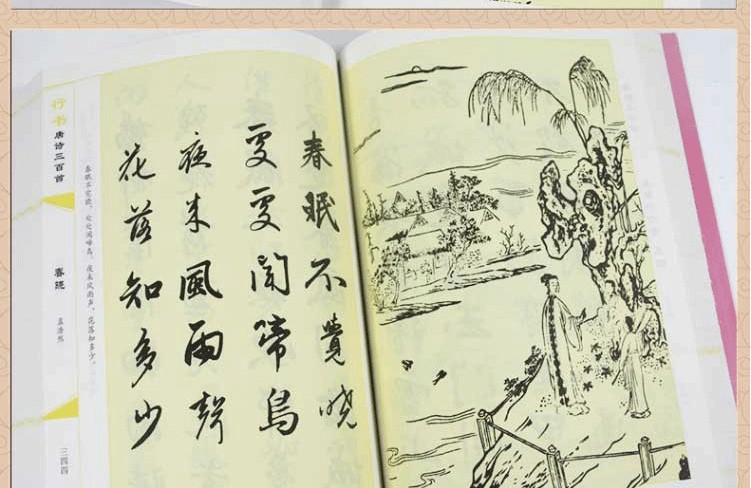 春眠不覺曉
處處聞啼鳥
夜来風雨聲
花落知多少
春眠不觉晓，处处闻啼鸟。夜来风雨声，花落知多少。
行书唐诗三百首
春晓
孟浩然
三四四